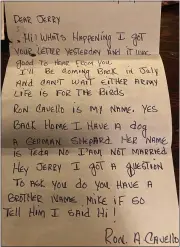 DEAR JERRY
. Hi! WHATS HAPPENING I GOT
YOUR LETTER YESTERDAY AND IT WAS
GOOD TO HEAR FROM YOU.
I'LL BE COMING BACK IN JULY
AND CAN'T WAIT EITHER ARMY
LIFE IS FOR THE BIRDS.
RON CAVELLO IS MY NAME. YES
BACK HOME I HAVE A DOG
A GERMAN SHEPARD HER NAME
IS TEDA NO I'AM NOT MARRIED
HEY JERRY I GOT A QUESTION
TO ASK YOU DO YOU HAVE A
BROTHER NAME MIKE IF SO
TELL HIM I SAID HI!
RON A CAVELLO